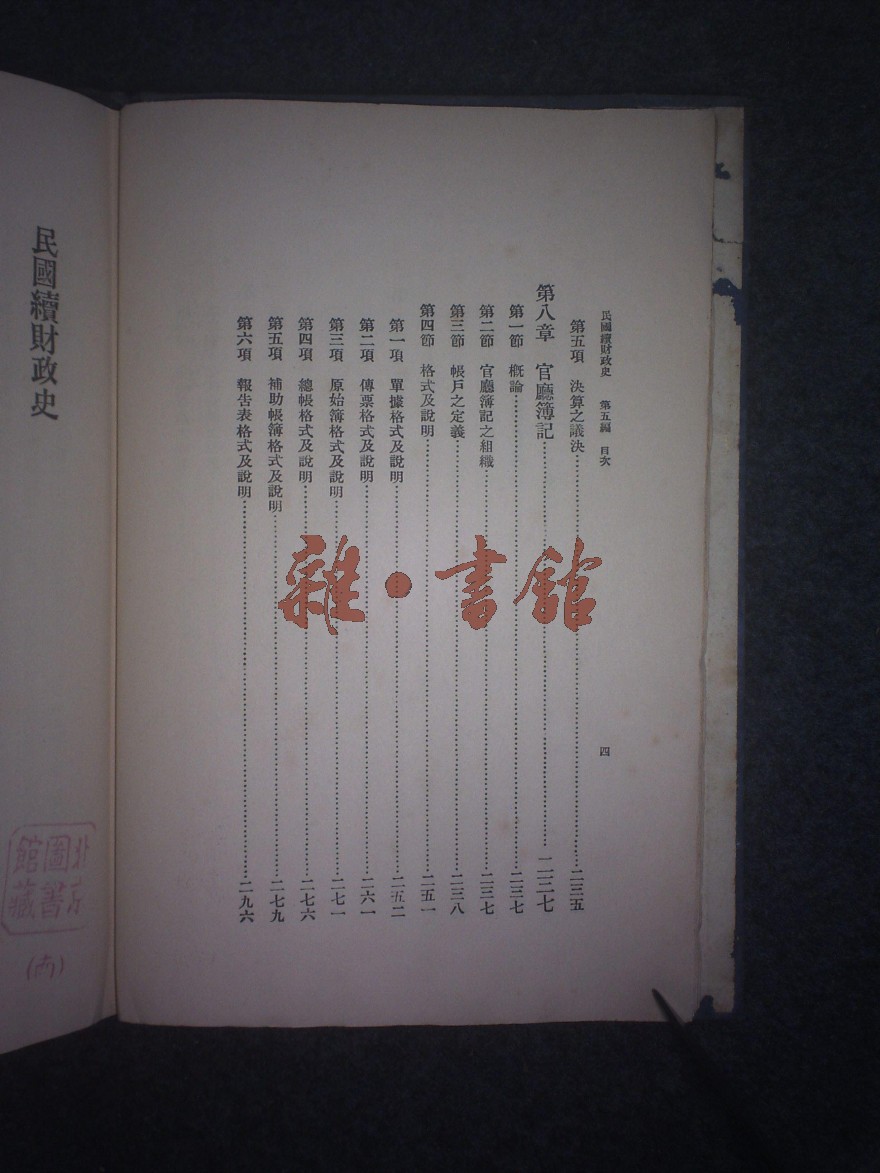 民國續財政史 第五編 目次 四
第五項 決算之議決…………二三五
第八章 官廳簿記…………二三七
第一節 概論…………二三七
第二節 官廳簿記之組織…………二三七
第三節 帳戶之定義…………二三八
第四節 格式及說明…………二五一
第一項 單據格式及說明…………二五二
第二項 傳票格式及說明…………二六一
第三項 原始簿格式及說明…………二七一
第四項 總帳格式及說明…………二七六
第五項 補助帳簿格式及說明…………二七九
第六項 報告表格式及說明…………二九六
民國續財政史
圖書
館藏
雜·書館